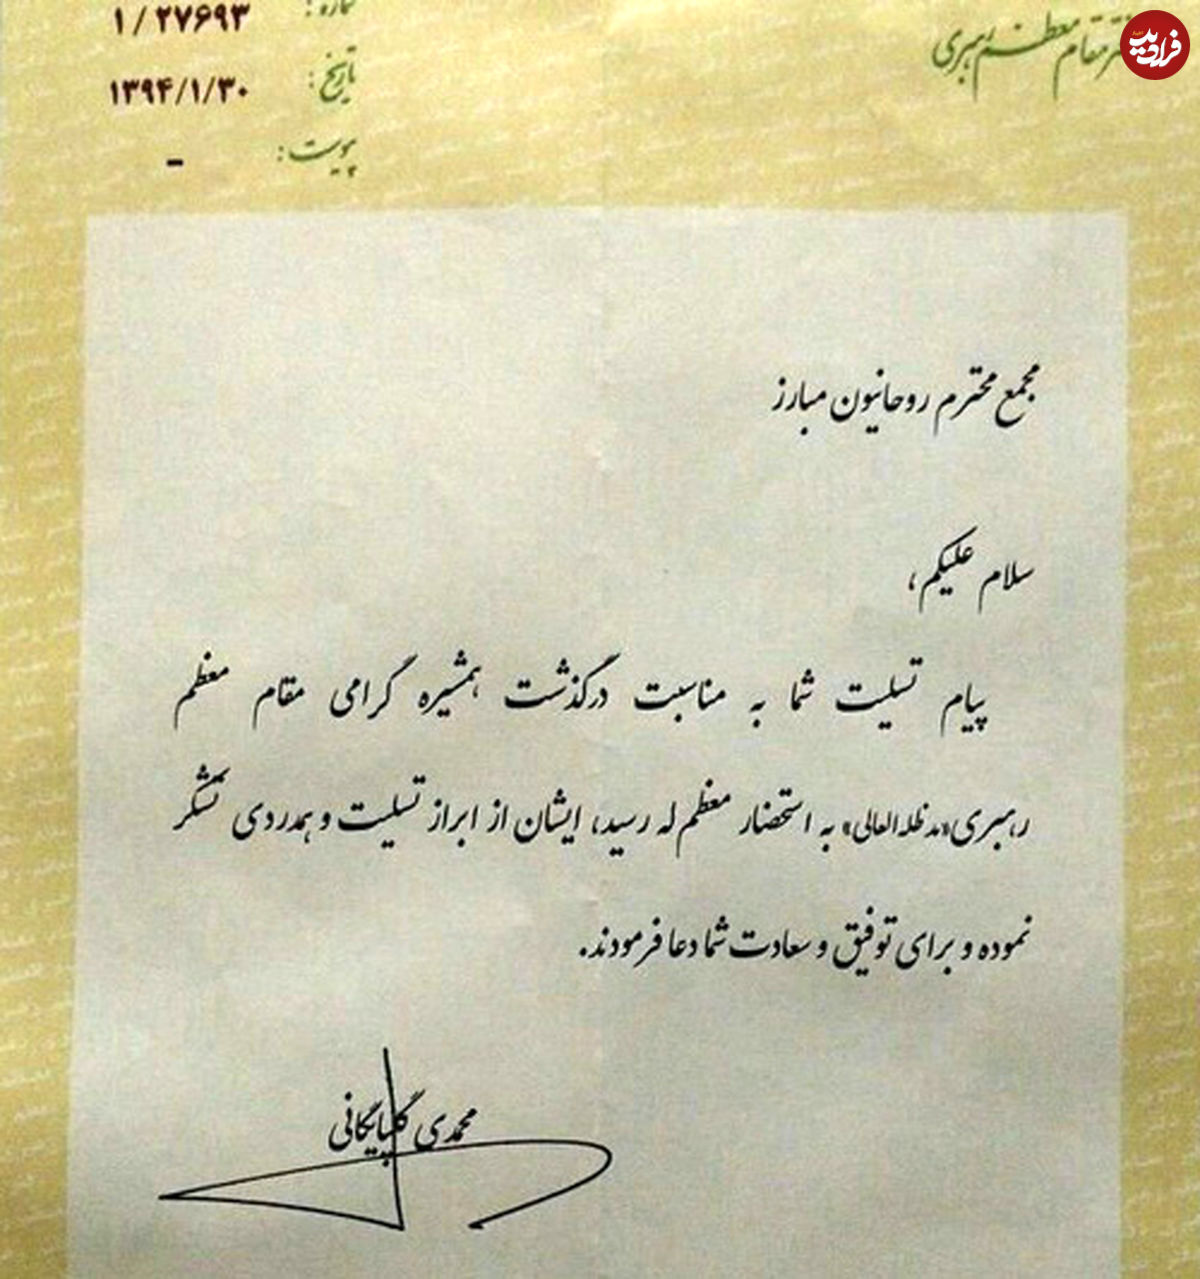 دفتر مقام معظم رهبری
فرادید
شماره :
۱ / ۲۷۶۹۳
تاریخ :
۱۳۹۴/۱/۳۰
پیوست :
-
مجمع محترم روحانیون مبارز
سلام علیکم ،
پیام تسلیت شما به مناسبت درگذشت همشیره گرامی مقام معظم
رهبری«مدظله‌العالی» به استحضار معظم‌له رسید، ایشان از ابراز تسلیت و همدردی تشکر
نموده و برای توفیق و سعادت شما دعا فرمودند.
محمدی گلپایگانی